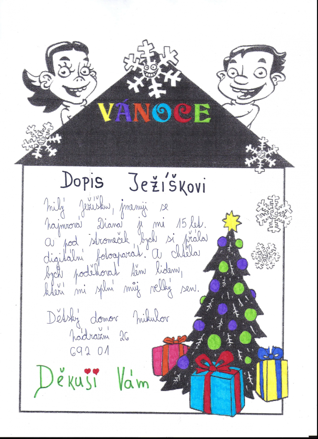 VÁNOCE
Dopis Ježíškovi
Milý Ježíšku, jmenuji se
Diana je mi 15 let.
A pod stromeček bych si přála
digitální fotoaparát. A chtěla
bych poděkovat těm lidem,
kteří mi splní můj velký sen.
Dětský domov Mikulov
Nádražní 26
692 01
Děkuji Vám